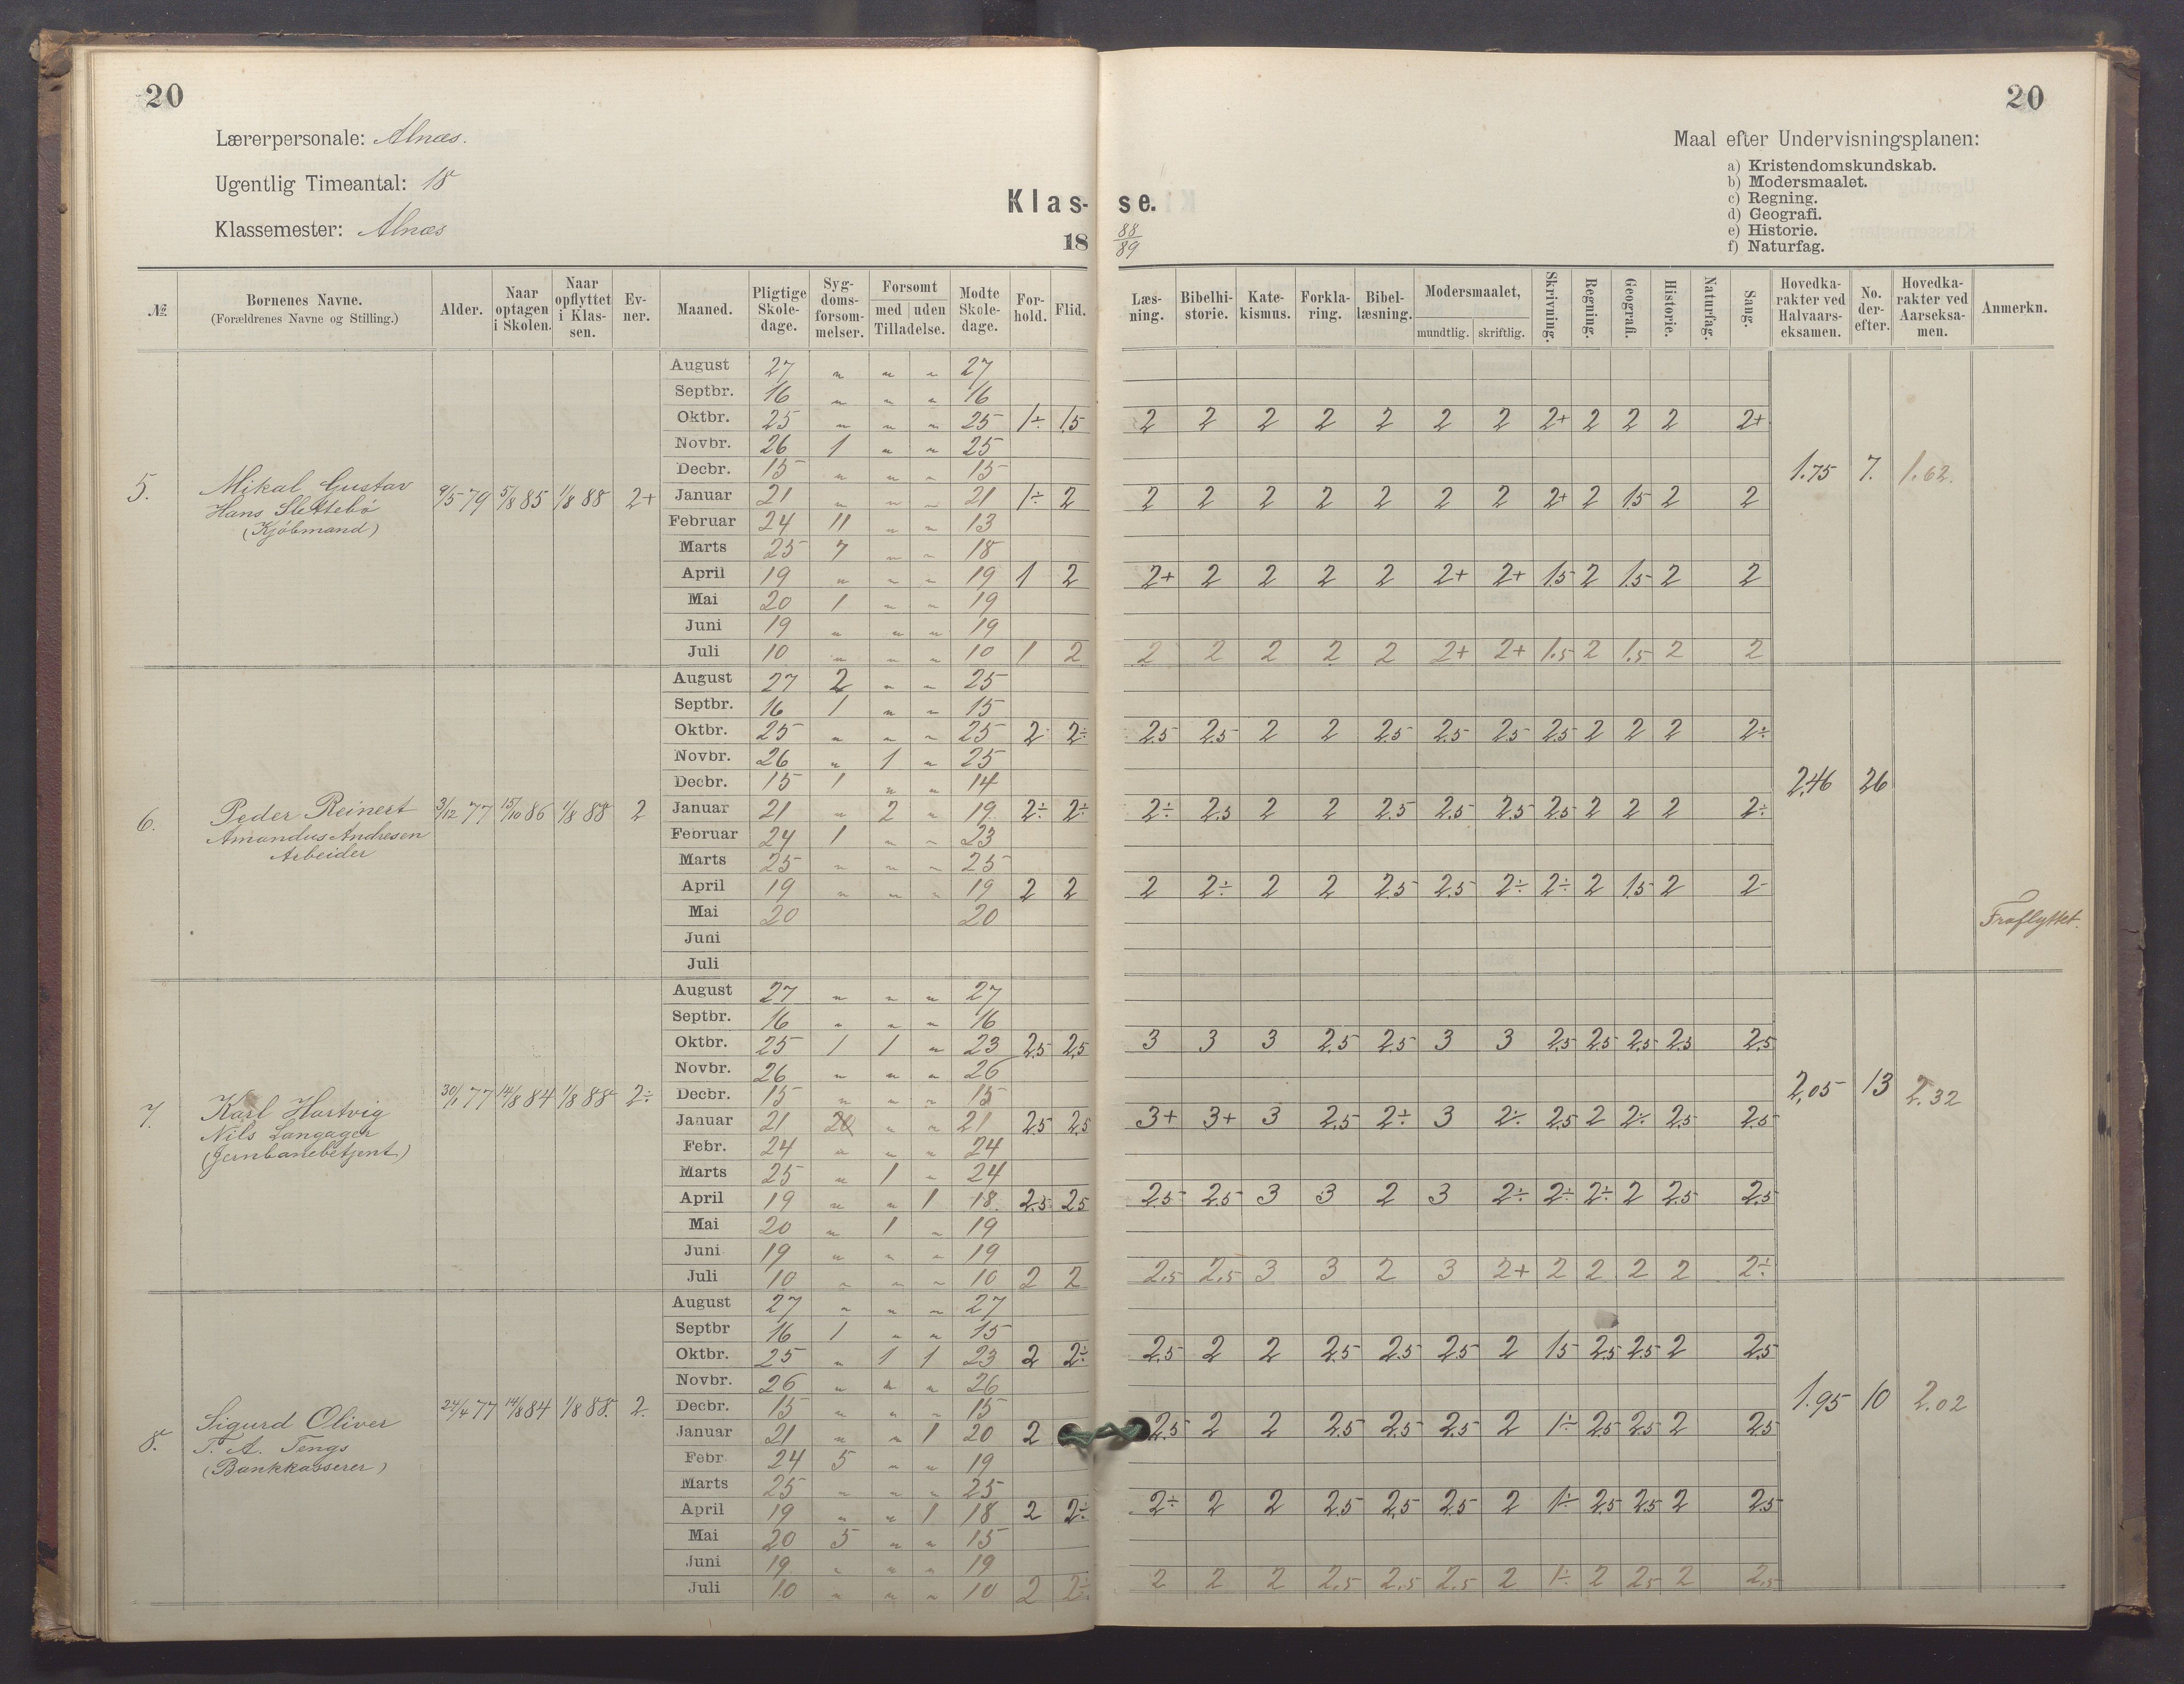 20
20
Lærerpersonale: Alnæs.
Ugentlig Timeantal: 18
Klassemester: Alnæs
Klas- se.
18 88/89
Maal efter Undervisningsplanen:
a) Kristendomskundskab.
b) Modersmaalet.
c) Regning.
d) Geografi.
e) Historie.
f) Naturfag.
№ | Børnenes Navne. (Forældrenes Navne og Stilling.) | Alder. | Naar optagen i Skolen. | Naar opflyttet i Klassen. | Evner. | Maaned. | Pligtige Skoledage. | Sygdomsforsommelser. | Forsømt med uden Tilladelse. | Mødte Skoledage. | Forhold. | Flid. | Læsning. | Bibelhistorie. | Katekismus. | Forklaring. | Bibellæsning. | Modersmaalet, mundtlig. skriftlig. | Skrivning. | Regning. | Geografi. | Historie. | Naturfag. | Sang. | Hovedkarakter ved Halvaarseksamen. | No. derefter. | Hovedkarakter ved Aarseksamen. | Anmerkn.
5. Mikal Gustav
Hans Slettebø
(Kjøbmand)
9/5 79 5/8 85 1/8 88 2+
August 27 " " " 27
Septbr. 16 " " " 16
Oktbr. 25 " " " 25 1÷ 1.5 2 2 2 2 2 2 2 2+ 2 2 2 2+
Novbr. 26 1 " " 25
Decbr. 15 " " " 15
1.75 7. 1.62.
Januar 21 " " " 21 1÷ 2 2 2 2 2 2 2 2 2+ 2 1.5 2 2
Februar 24 11 " " 13
Marts 25 7 " " 18
April 19 " " " 19 1 2 2+ 2 2 2 2 2+ 2+ 1.5 2 1.5 2 2
Mai 20 1 " " 19
Juni 19 " " " 19
Juli 10 " " " 10 1 2 2 2 2 2 2 2+ 2+ 1.5 2 1.5 2 2
6. Peder Reinert
Amandus Andresen
Arbeider
3/12 77 15/10 86 1/8 88 2
August 27 2 " " 25
Septbr. 16 1 " " 15
Oktbr. 25 " " " 25 2 2÷ 2.5 2.5 2 2 2.5 2.5 2.5 2.5 2 2 2 2÷
Novbr. 26 " 1 " 25
Decbr. 15 1 " " 14
2.46 26
Januar 21 " 2 " 19 2÷ 2÷ 2÷ 2.5 2 2 2.5 2.5 2.5 2.5 2 2 2 2÷
Februar 24 1 " " 23
Marts 25 " " " 25
April 19 " " " 19 2 2 2 2÷ 2 2 2.5 2.5 2÷ 2÷ 2 1.5 2 2
Mai 20 20
Fraflyttet.
Juni
Juli
7. Karl Hartvig
Nils Langager
(Jernbanebetjent)
30/1 77 14/8 84 1/8 88 2÷
August 27 " " " 27
Septbr. 16 " " " 16
Oktbr. 25 1 1 " 23 2.5 2.5 3 3 3 2.5 2.5 3 3 2.5 2.5 2.5 2.5 2.5
Novbr. 26 " " " 26
Decbr. 15 " " " 15
2,05 13 2.32
Januar 21 20 " " 21 2.5 2.5 3+ 3+ 3 2.5 2÷ 3 2÷ 2.5 2 2÷ 2.5 2.5
Febr. 24 " " " 24
Marts 25 " 1 " 24
April 19 " " 1 18. 2.5 2.5 2.5 2.5 3 3 2 3 2÷ 2÷ 2÷ 2 2.5 2.5
Mai 20 " 1 " 19
Juni 19 " " " 19
Juli 10 " " " 10 2 2 2.5 2.5 3 3 2 3 2+ 2 2 2 2 2÷
8. Sigurd Oliver
T. A. Tengs
(Bankkasserer)
24/4 77 14/8 84 1/8 88. 2.
August 27 " " " 27
Septbr 16 1 " " 15
Oktbr. 25 " 1 1 23 2 2÷ 2.5 2 2 2.5 2.5 2.5 2 1.5 2.5 2.5 2 2.5
Novbr. 26 " " " 26
Decbr. 15 " " " 15
1.95 10 2.02
Januar 21 " " 1 20 2 2.5 2 2 2.5 2.5 2.5 2 1÷ 2.5 2.5 2 2.5
Febr 24 5 " " 19
Marts 25 " " " 25
April 19 " " 1 18 2 2÷ 2÷ 2 2 2.5 2.5 2.5 2 1÷ 2.5 2.5 2 2.5
Mai 20 5 " " 15
Juni 19 " " " 19
Juli 10 " " " 10 2 2÷ 2 2 2 2.5 2.5 2.5 2 1÷ 2 2.5 2 2.5